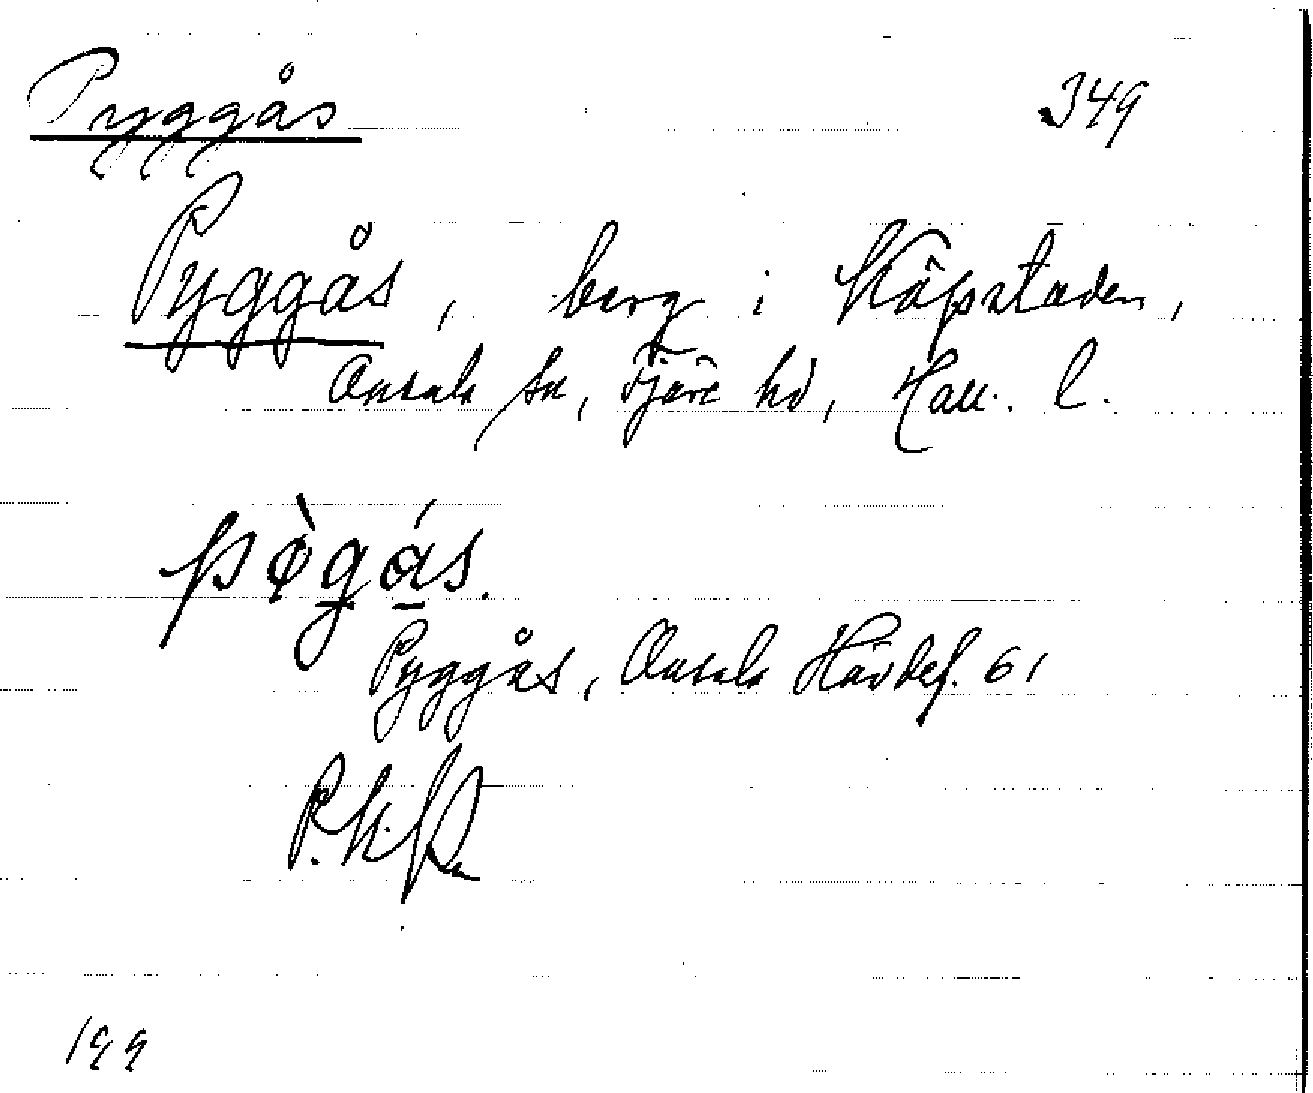 Pyggås 349
Pyggås, berg i Köpstaden,
Onsala sn, Fjäre hd, Hall. l.
pø̀gás.
Pyggås, Onsala Hävdef. 61
P.
199